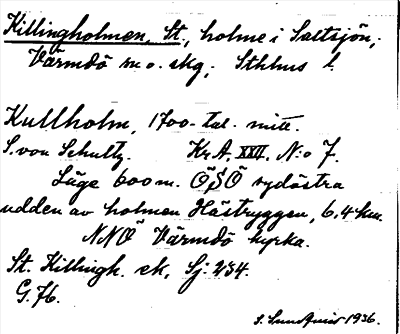 Killingholmen, St., holme i Saltsjön,
Värmdö sn o. skg, Sthlms l.
Kullholm, 1700-tal. mitt.
S. von Schultz. Kr.A. XXII, N:o 7.
Läge 600 m. ÖSÖ sydöstra
udden av holmen Hästryggen, 6,4 km.
NNÖ Värmdö kyrka.
St. Killingh. ek, Sj. 234.
G. 76.
S. Lundqvist 1936.